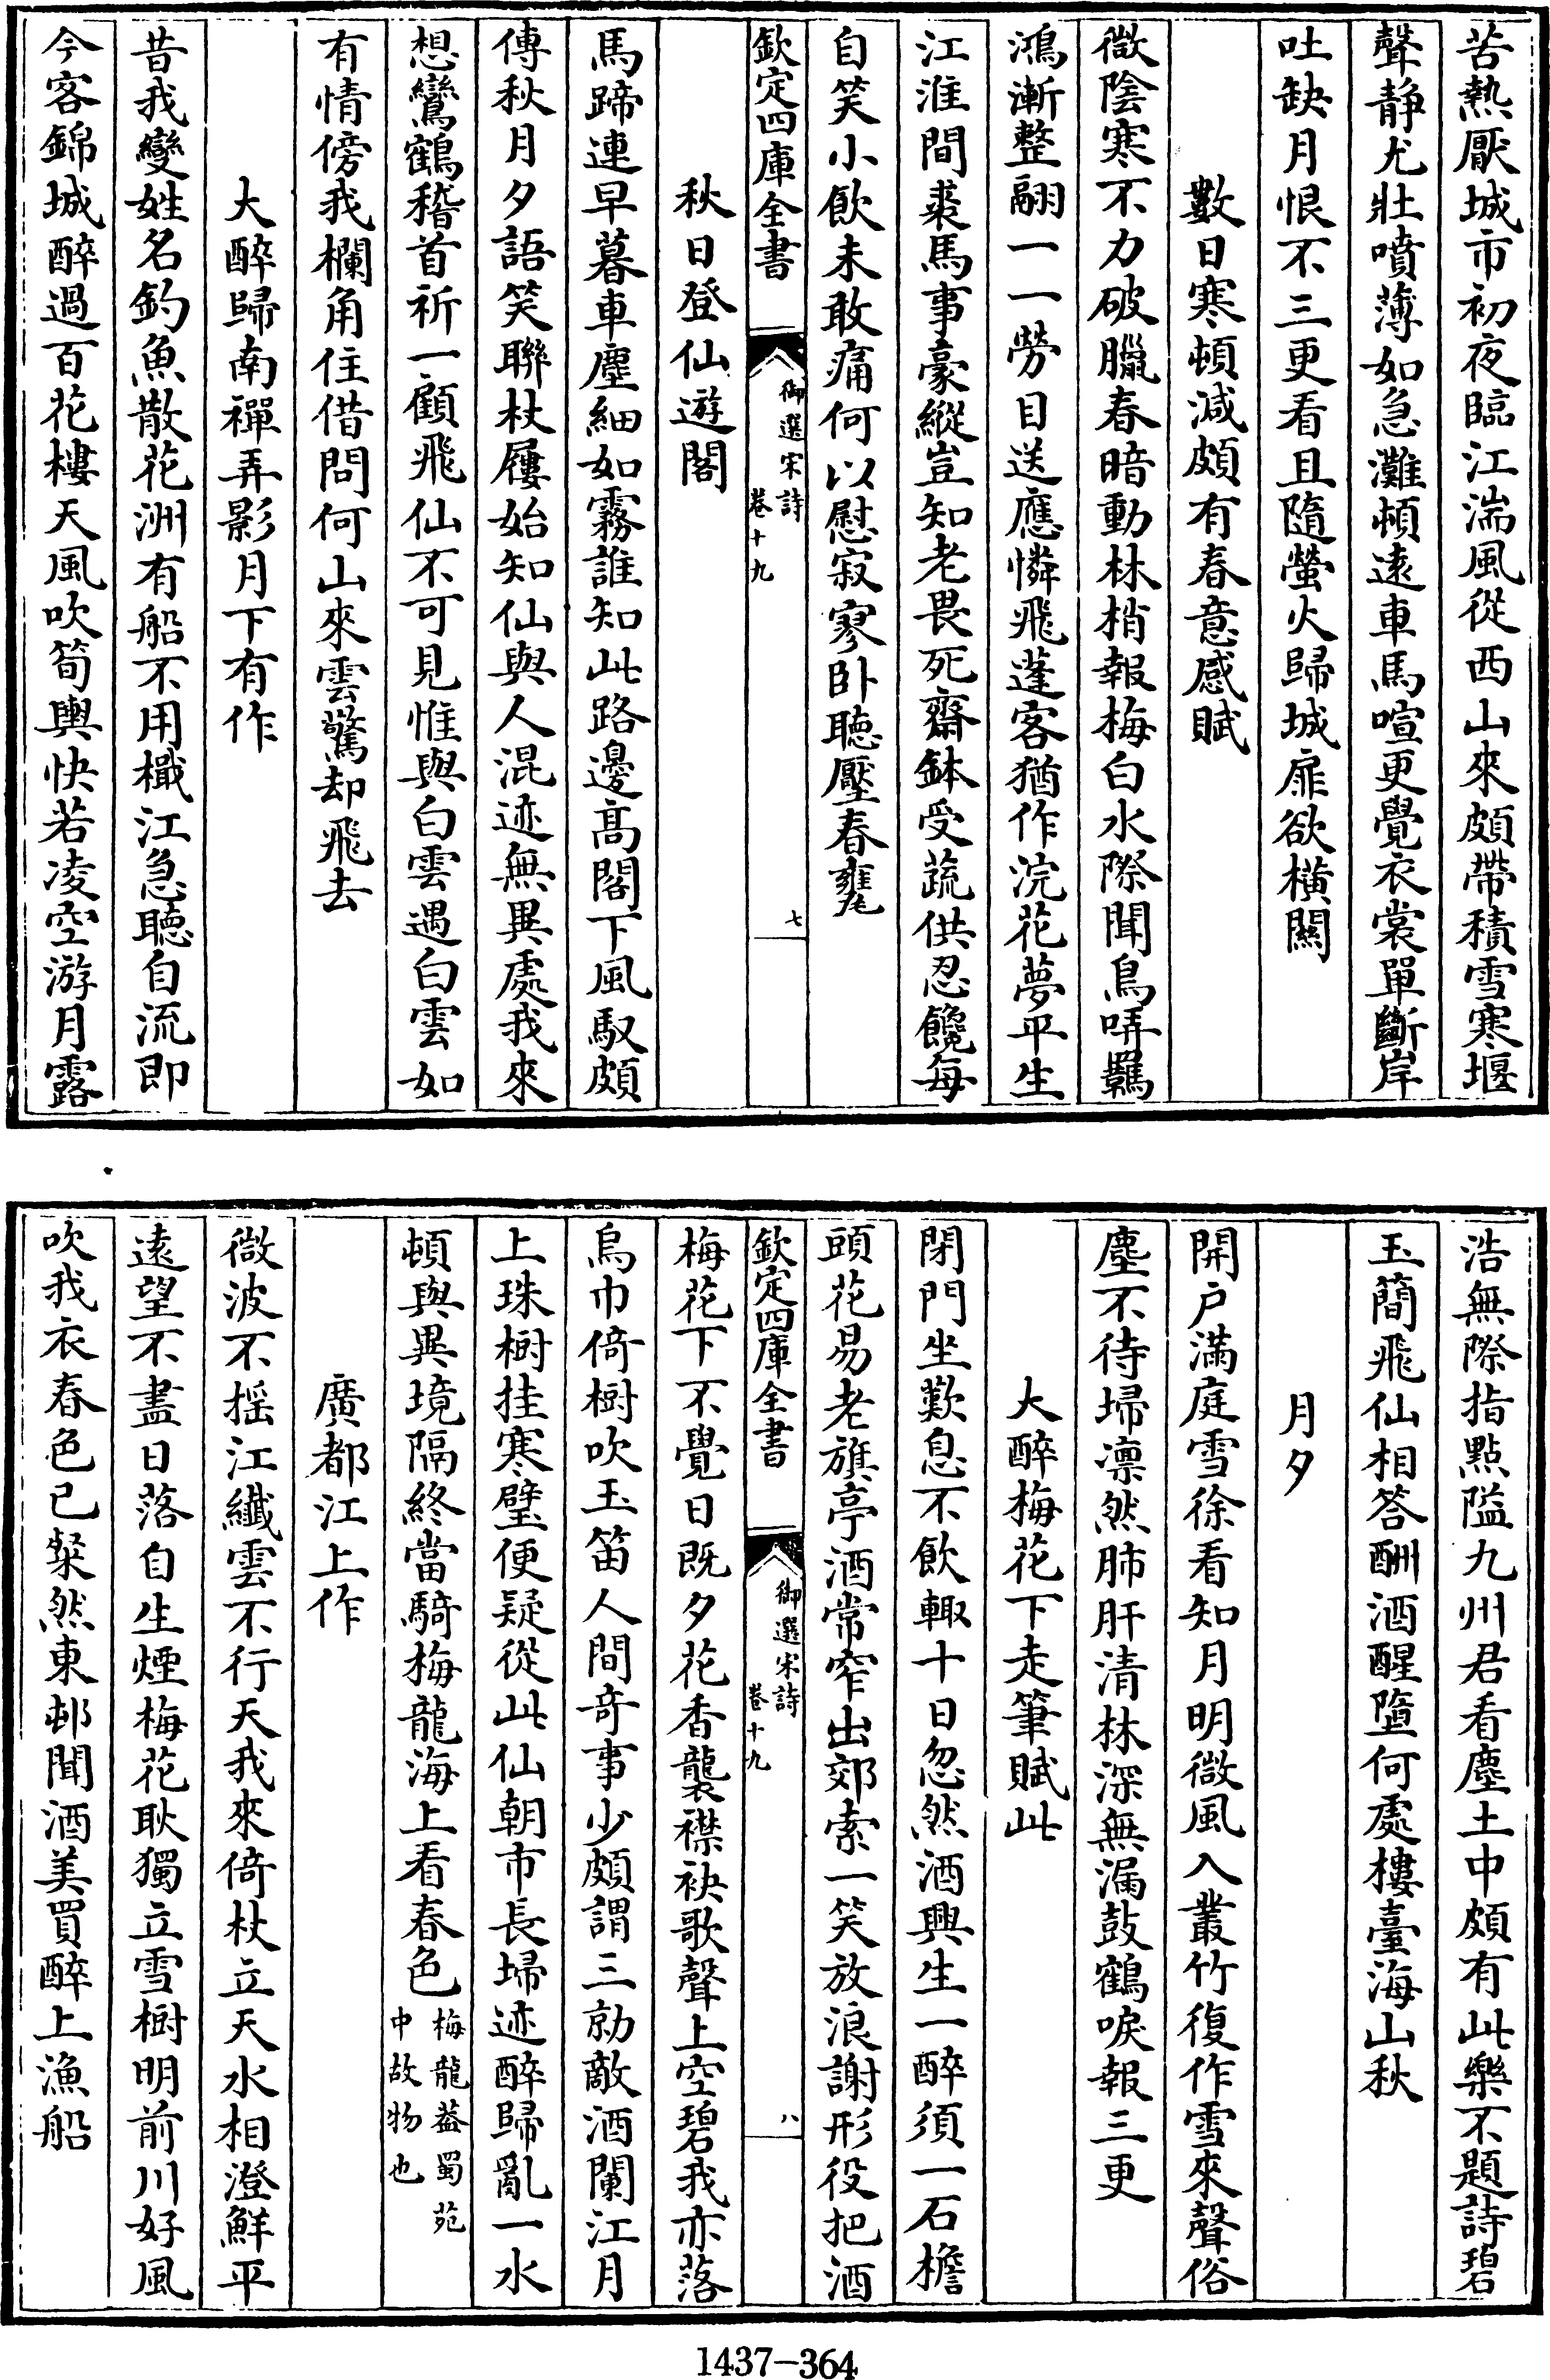 苦熱厭城市初夜臨江湍風從西山來頗帶積雪寒堰
聲静尤壯噴薄如急灘頓遠車馬喧更覺衣裳單斷岸
吐缺月恨不三更看且隨螢火歸城扉欲橫關
數日寒頓減頗有春意感賦
微陰寒不力破臘春暗動林梢報梅白水際聞鳥哢羈
鴻漸整翮一一勞目送應憐飛蓬客猶作浣花夢平生
江淮間裘馬事豪縱豈知老畏死齋鉢受蔬供忍饞每
自笑小飲未敢痛何以慰寂寥卧聽壓春甕
欽定四庫全書
御選宋詩
卷十九
七
秋日登仙遊閣
馬蹄連早暮車塵細如霧誰知此路邊高閣下風馭頗
傳秋月夕語笑聯杖屨始知仙與人混迹無異處我來
想鸞鶴稽首祈一顧飛仙不可見惟與白雲遇白雲如
有情傍我欄角住借問何山來雲驚却飛去
大醉歸南禪弄影月下有作
昔我變姓名釣魚散花洲有船不用檝江急聽自流即
今客錦城醉過百花樓天風吹筍輿快若凌空游月露
浩無際指點隘九州君看塵土中頗有此樂不題詩碧
玉簡飛仙相答酬酒醒墮何處樓臺海山秋
月夕
開户滿庭雪徐看知月明微風入叢竹復作雪來聲俗
塵不待埽凛然肺肝清林深無漏鼓鶴唳報三更
大醉梅花下走筆賦此
閉門坐歎息不飲輙十日忽然酒興生一醉須一石檐
頭花易老旗亭酒常窄出郊索一笑放浪謝形役把酒
欽定四庫全書
御選宋詩
卷十九
八
梅花下不覺日既夕花香襲襟袂歌聲上空碧我亦落
烏巾倚樹吹玉笛人間奇事少頗謂三勍敵酒闌江月
上珠樹挂寒璧便疑從此仙朝市長埽迹醉歸亂一水
頓與異境隔終當騎梅龍海上看春色梅龍葢蜀苑
中故物也
廣都江上作
微波不摇江纎雲不行天我來倚杖立天水相澄鮮平
遠望不盡日落自生煙梅花耿獨立雪樹明前川好風
吹我衣春色已粲然東邨聞酒美買醉上漁船
1437-364